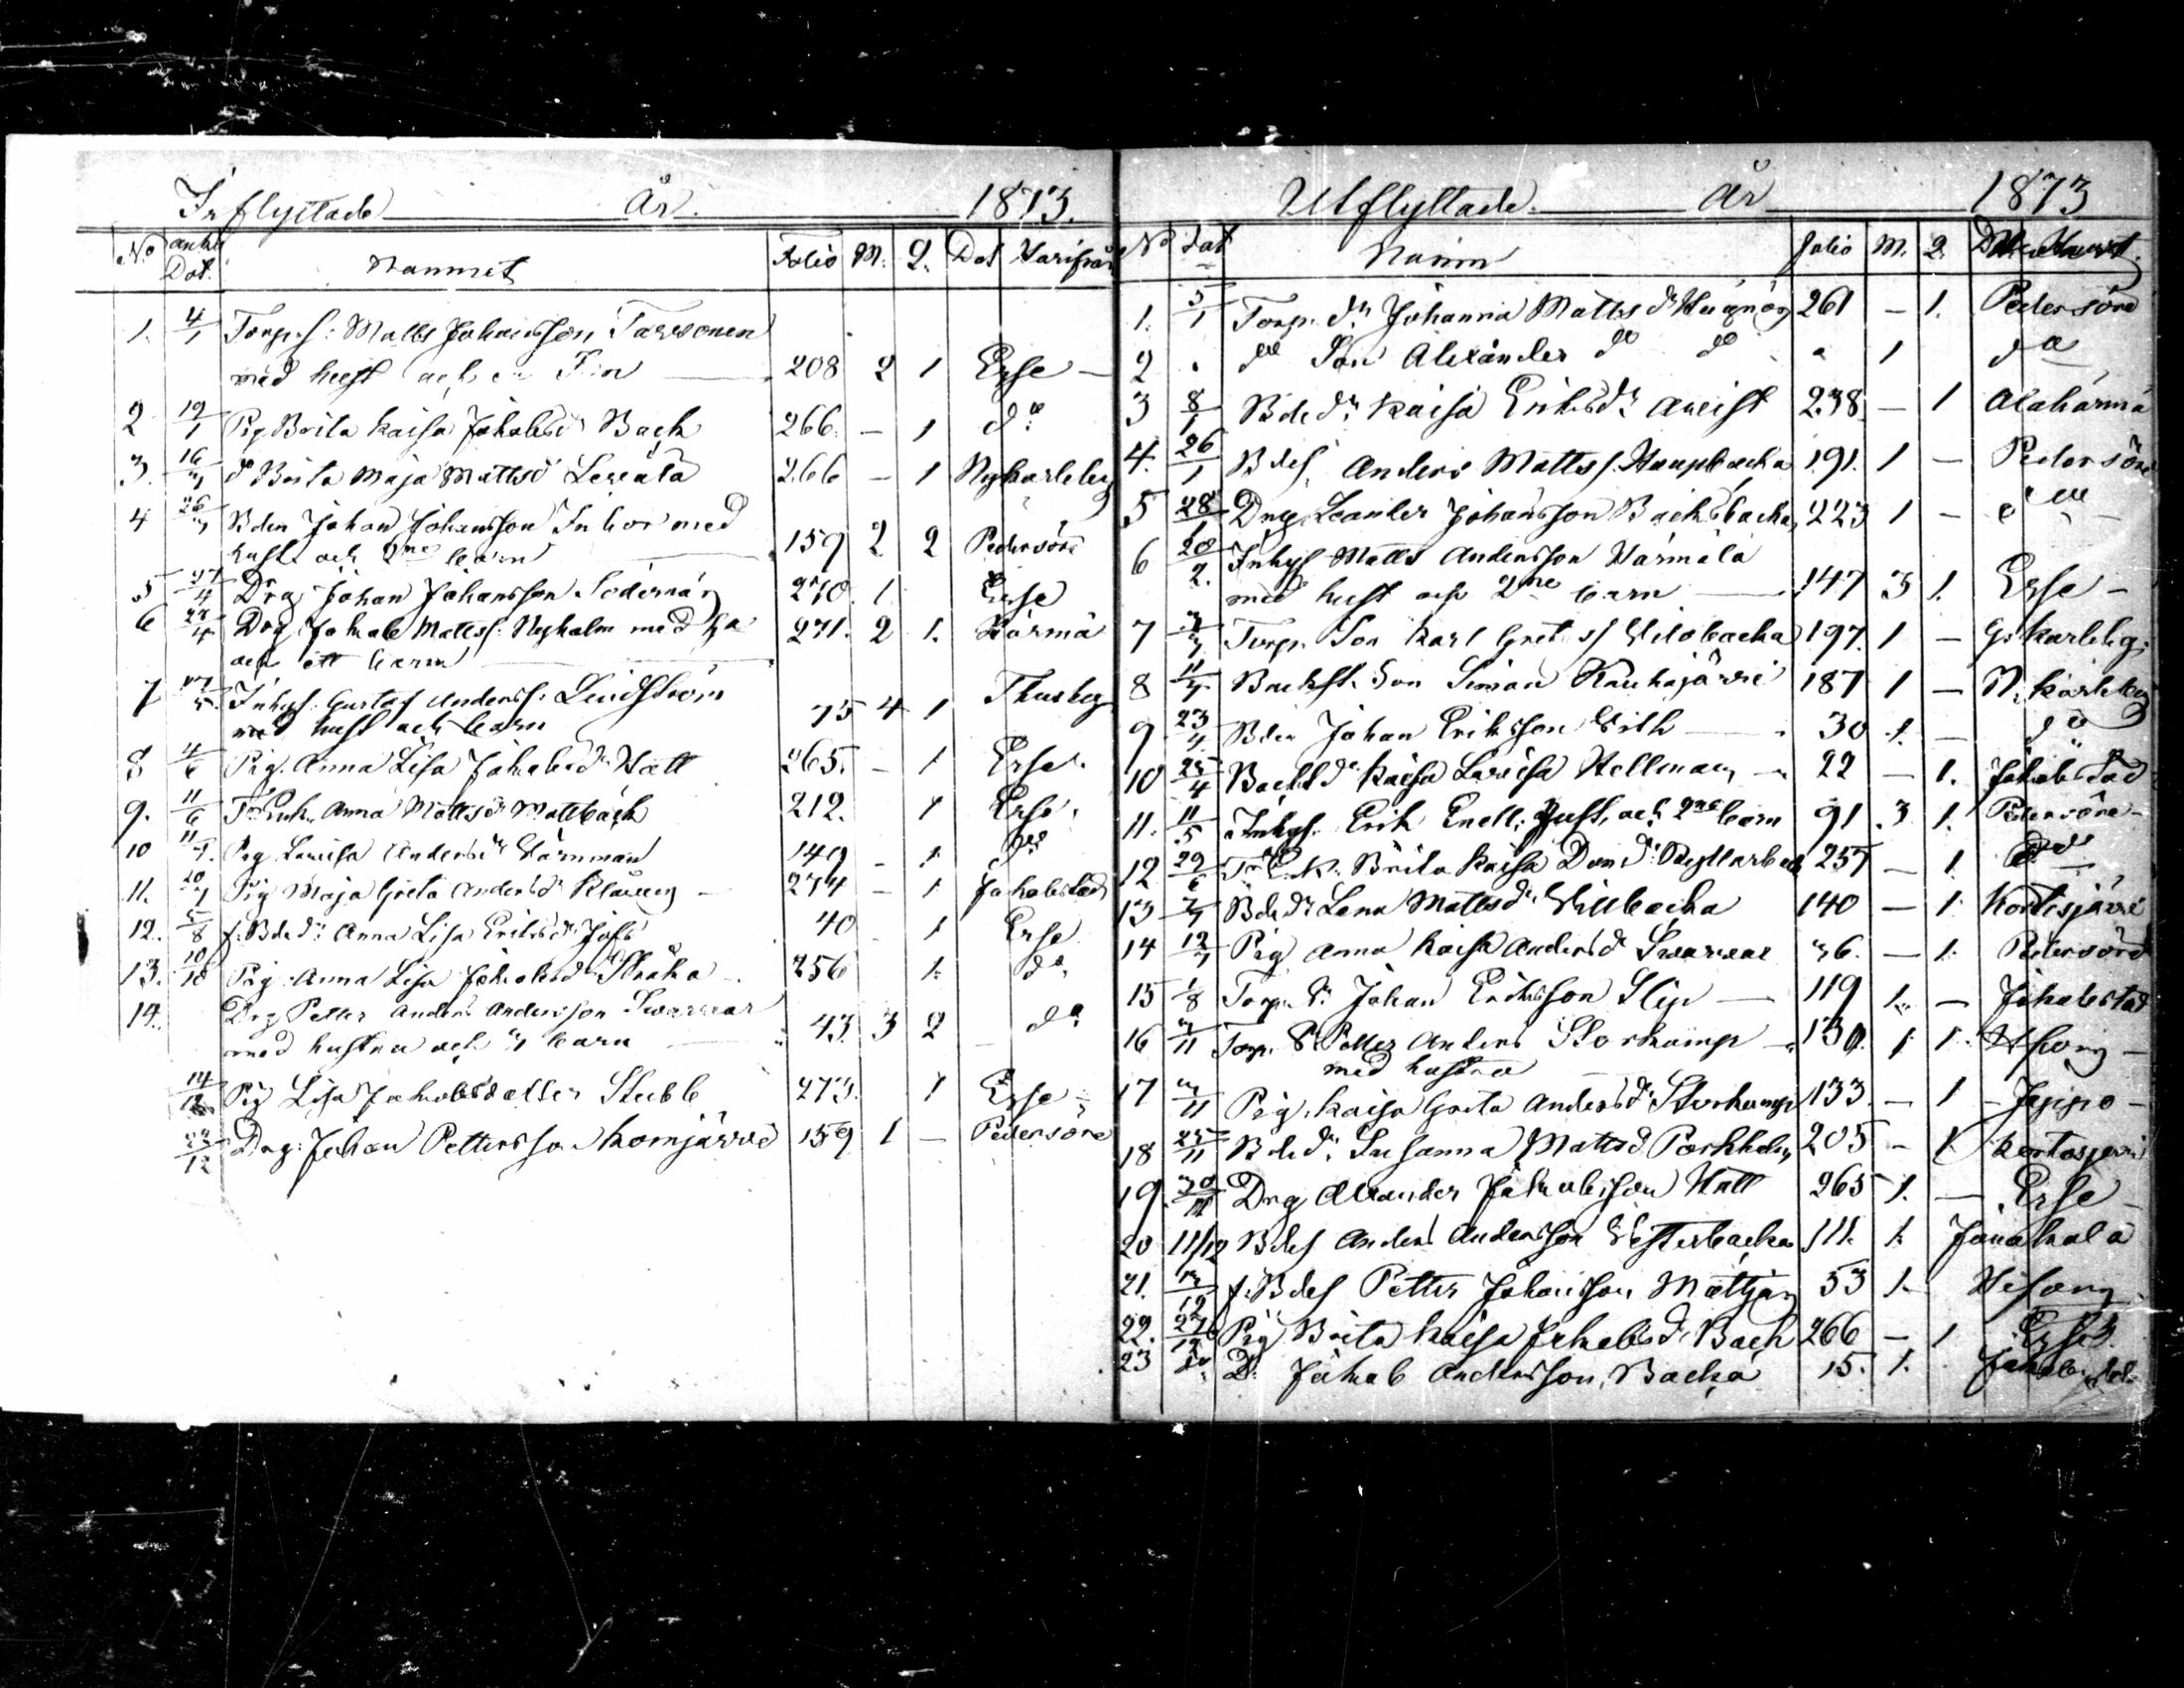 Inflyttade År. 1873.
No ank Dat. Namnet Folio M. Q. Dat Varifrån
1. 4/1 Torp. s: Matts Johansson Tarvonen
med hust och en Son 208 2 1 Esse
2 19/1 Pig Brita Kaisa Jakobsdr Back 266. — 1 do
3. 16/3 do Brita Maja Mattsdr 266 — 1 Nykarleby
4 26/3 Bden Johan Johansson Inbor med
hust. och 2ne barn 159 2 2 Pedersöre
5 27/4 Drg Johan Johansson Södernäs 270. 1 Esse
6 27/4 Drg Jakob Mattss: Nyholm med ha 271. 2 1. Härmä
och ett barn
7 Inhys. Gustaf Anderss. Lindström
med hust och barn 75 4 1 Thusby
8 4/6 Pig. Anna Lisa Jakobsdr Hatt 265. — 1 Esse
9. 11/6 Anna Mattsdr Mattbäck 212. 1 Esse
10 Pig Lovisa Andersdr Wärnman 149 — 1 do
11. 20/7 Pig Maja Greta Andersdr 274 — 1 Jakobstad
12. 5/8 f. Bde dr Anna Lisa Eriksdr Jofs 40 1 Esse
13. 10/10 Pig. Anna Lisa Jakobsdr 256 1. do
14. Drg Petter Anders Andersson Swarvar
med hustru och 3 barn 43. 3 2 do
14/12 Pig Lisa Jakobsdotter Stubb 273. 1 Esse
23/12 Drg: Johan Pettersson Komjärvi 159 1 — Pedersöre
Utflyttade År 1873
No Dat Namn Folio M. Q.
1. 5/1 Torp. dr Johanna Mattsdr 261 — 1. Pedersöre
2 do Son Alexander do do 1 do
3 8/1 Bde dr Kaisa Eriksdr Aveist 238 — 1 Alahärmä
4. 26/1 Bdes. Anders Mattss. Haupbacka 191. 1 — Pedersöre
5 28/1 Drg. Leander Johansson Backsbacka 223 1 — do
6 20/2. Inhys Matts Andersson Härmälä
med hust och 2ne barn 147 3 1. Esse
7 Torp. Son Karl Gret. 197. 1 — G. Karleby
8 Backst. Son Simon Kauhajärvi 187 1 — N. Karleby
9 23/4 Bden Johan Eriksson With 30 1. — do
10 25/4 Backst dr Kaisa Lovisa Hellman 22 — 1. Jakobstad
11. 11/5 Inhys. Erik Enell, Hust, och 2ne barn 91 3 1. Pedersöre
12 29/6 Brita Kaisa 257 — 1. do
13 7/7 Bde dr Lena Mattsdr Willbacka 140 — 1. Kortesjärvi
14 12/7 Pig Anna Kaisa Andersdr Swarvar 36. — 1. Pedersöre
15 1/8 Torp. S. Johan Eriksson Slip 119 1. — Jakobstad
16 3/11 Torp. S. Petter Anders Storkamp 130. 1 1.
med hustru
17 3/11 Pig. Kaisa Greta Andersdr Storkamp 133. — 1 Jeppo
18 25/11 Bde dr. Susanna Mattsd Parkholm 205 — 1 Kortesjärvi
19. 30/11 Drg Alexander Jakobsson Hatt 265 1. — Esse
20 11/12 Bdes Anders Andersson Westerbacka 111. 1. Janakala
21. 13/12 f. Bdes Petter Johansson Mattjan 53 1.
22. 27/12 Pig Brita Kaisa Jakobsdr Back 266 — 1 Esse
23 do Dr Jakob Andersson Backa 15. 1. Jakobstad